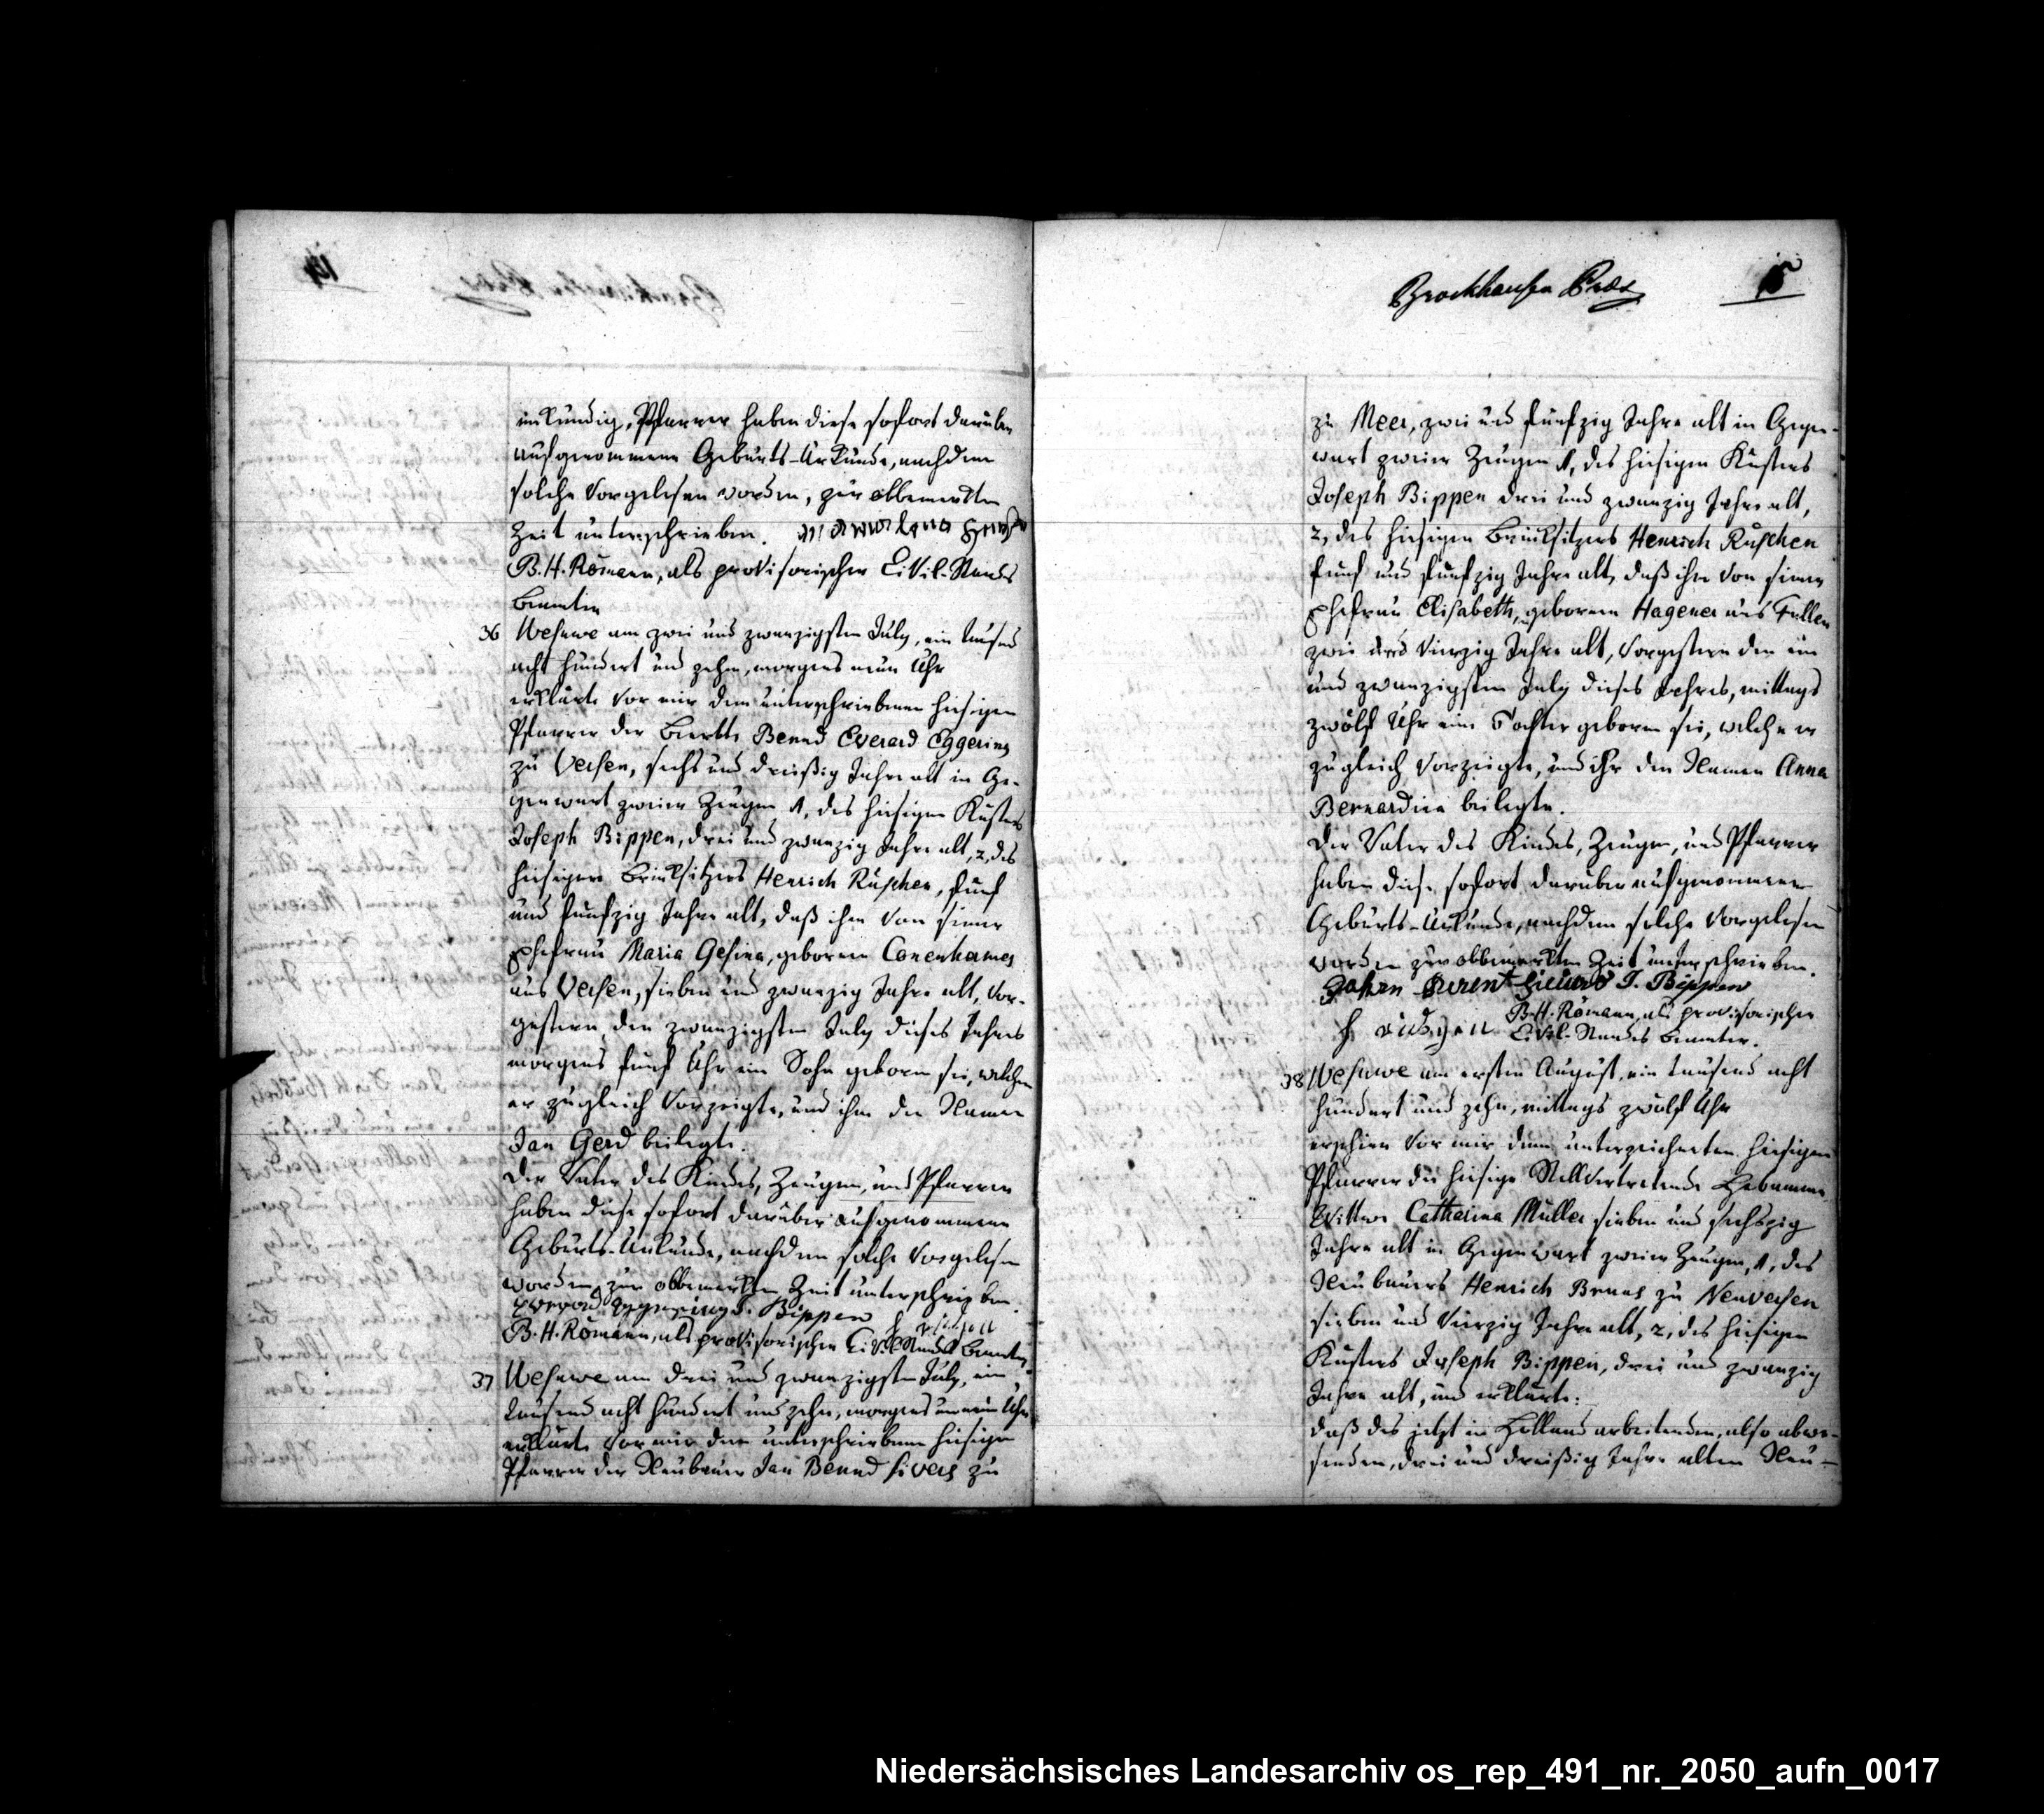 inkundig, Pfarrer haben diese sofort darüber
aufgenommene Geburts-Urkunde, nachdem
solche vorgelesen worden, zur obbemerkten
Zeit unterschrieben.
B. H. Römann, als provisorischer Civil-Stands
Beamter
36 Wesuwe am zwei und zwanzigsten July, ein tausend
acht hundert und zehn, morgens neun Uhr
erklärte vor mir dem unterschriebenen hiesigen
Pfarrer der Bernd Everard Eggering
zu Versen, sechs und dreißig Jahre alt in Ge-
genwart zweier Zeugen 1, des hiesigen Küsters
Joseph Bippen, drei und zwanzig Jahre alt, 2, des
hiesigen Brinksitzers Henrich Rüschen, fünf
und fünfzig Jahre alt, daß ihm von seiner
Ehefrau Maria Gesina, geboren Conenhames
aus Versen, sieben und zwanzig Jahre alt, vor-
gestern den zwanzigsten July dieses Jahres
morgens fünf Uhr ein Sohn geboren sei, welchen
er zugleich vorzeigte, und ihm die Namen
Jan Gerd beilegte.
Der Vater des Kindes, Zeugen, und Pfarrer
haben diese sofort darüber aufgenommene
Geburts-Urkunde, nachdem solche vorgelesen
worden, zur obbemerkten Zeit unterschrieben.
Everard Eggering J. Bippen H Rüschen
B. H. Römann, als provisorischer Civil-Stands Beamter
37 Wesuwe am drei und zwanzigsten July, ein
tausend acht hundert und zehn, morgens um neun Uhr
erklärte vor mir dem unterschriebenen hiesigen
Pfarrer der Neubauer Jan Bernd Sivers zu
Brockhausen Präs
15
zu Meer, zwei und fünfzig Jahre alt in Gegen-
wart zweier Zeugen 1, des hiesigen Küsters
Joseph Bippen drei und zwanzig Jahre alt,
2, des hiesigen Brinksitzers Henrich Rüschen
fünf und fünfzig Jahre alt, daß ihm von seiner
Ehefrau Elisabeth, geboren Hagener aus Fullen
zwei und vierzig Jahre alt, vorgestern den ein
und zwanzigsten July dieses Jahres, mittags
zwölf Uhr eine Tochter geboren sei, welche er
zugleich vorzeigte, und ihr den Namen Anna
Bernardina beilegte.
Der Vater des Kindes, Zeugen, und Pfarrer
haben diese sofort darüber aufgenommene
Geburts-Urkunde, nachdem solche vorgelesen
worden zur obbemerkten Zeit unterschrieben.
J. Bippen
B. H. Römann, als provisorischer
H Rüschen Civil-Standes Beamter.
38 Wesuwe am ersten August, ein tausend acht
hundert und zehn, mittags zwölf Uhr
erschien vor mir dem unterzeichneten hiesigen
Pfarrer die hiesige Stellvertretende Hebamme
Wittwe Catharina Müller sieben und sechszig
Jahre alt in Gegenwart zweier Zeugen, 1, des
Neubauers Henrich Bruns zu Neuversen
sieben und vierzig Jahre alt, 2, des hiesigen
Küsters Joseph Bippen, drei und zwanzig
Jahre alt, und erklärte:
daß des jetzt in Holland arbeitenden, also abwe-
senden, drei und dreißig Jahre alten Neu-
Niedersächsisches Landesarchiv os_rep_491_nr._2050_aufn_0017